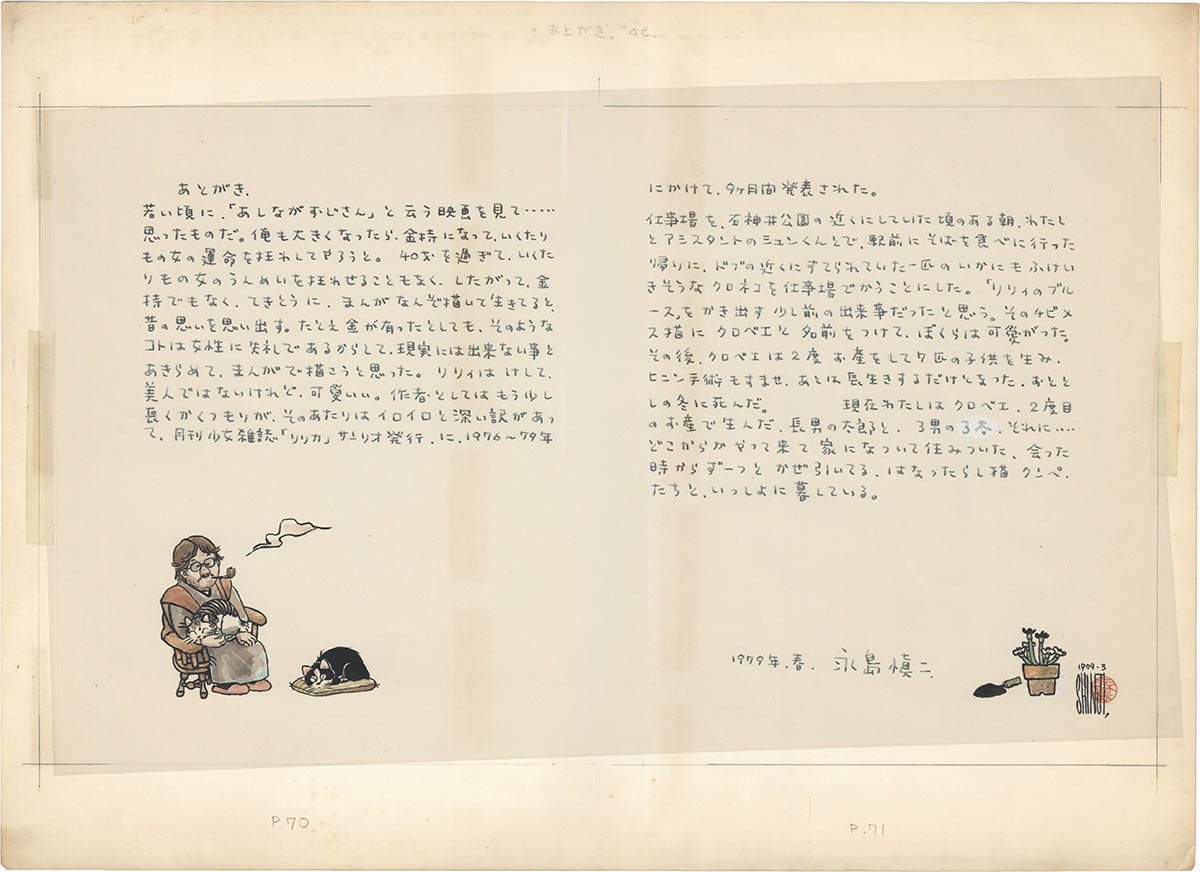 あとがき、4C.
あとがき、
若い頃に、「あしながおじさん」と云う映画を見て……
思ったものだ。俺も大きくなったら、金持になって、いくたり
もの女の運命を狂わしてやろうと。 40才を過ぎて、いくた
りもの女のうんめいを狂わせることもなく、したがって、金
持でもなく、てきとうに、まんがなんぞ描いて生きてると、
昔の思いを思い出す。たとえ金が有ったとしても、そのような
コトは女性に失礼であるからして、現実には出来ない事と
あきらめて、まんがで描こうと思った。リリィはけして、
美人ではないけれど、可愛いい。作者としてはもう少し
長くかくつもりが、そのあたりはイロイロと深い訳があっ
て、月刊少女雑誌「リリカ」サンリオ発行、に、1976〜79年
にかけて、9ヶ月間発表された。
仕事場を、石神井公園の近くにしていた頃のある朝、わたし
とアシスタントのシュンくんとで、駅前にそばを食べに行った
帰りに、ドブの近くにすてられていた一匹のいかにもふけい
きそうなクロネコを仕事場でかうことにした。「リリィのブル
ース」をかき出す少し前の出来事だったと思う。そのチビメ
ス猫にクロベエと名前をつけて、ぼくらは可愛がった。
その後、クロベエは2度お産をして7匹の子供を生み、
ヒニン手術もすませ、あとは長生きするだけとなった、おとと
しの冬に死んだ。 現在わたしはクロベエ、2度目
のお産で生んだ、長男の太郎と、3男の3冬、それに‥‥
どこからかやって来て家になついて住みついた、会った
時からずーっとかぜ引いてる、はなったらし猫クンペ、
たちと、いっしょに暮している。
1979年、春、 永島慎二
1979・3
SHINJI,
P.70
P.71